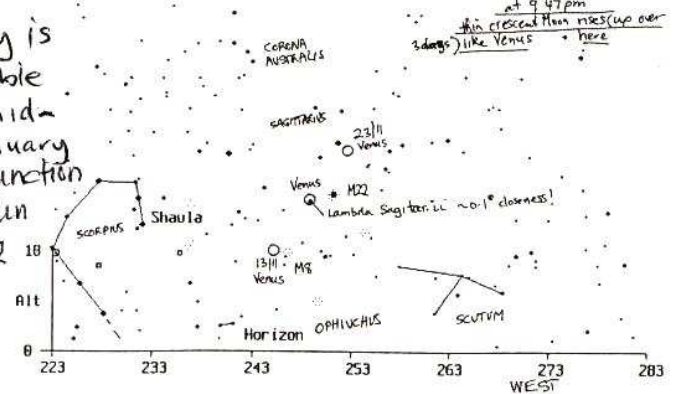 y is
ble
id-
uary
unction
un
at 9 47pm
thin crescent Moon rises (up over
3 days) like Venus here
CORONA
AUSTRALIS
SAGITTARIUS
23/11
Venus
Venus M22
Lambda Sagitarii ~0.1° closeness!
Shaula
SCORPIUS
18
13/11 M8
Venus
Alt
Horizon
OPHIUCHUS
SCUTUM
0
223 233 243 253 263 273 283
WEST